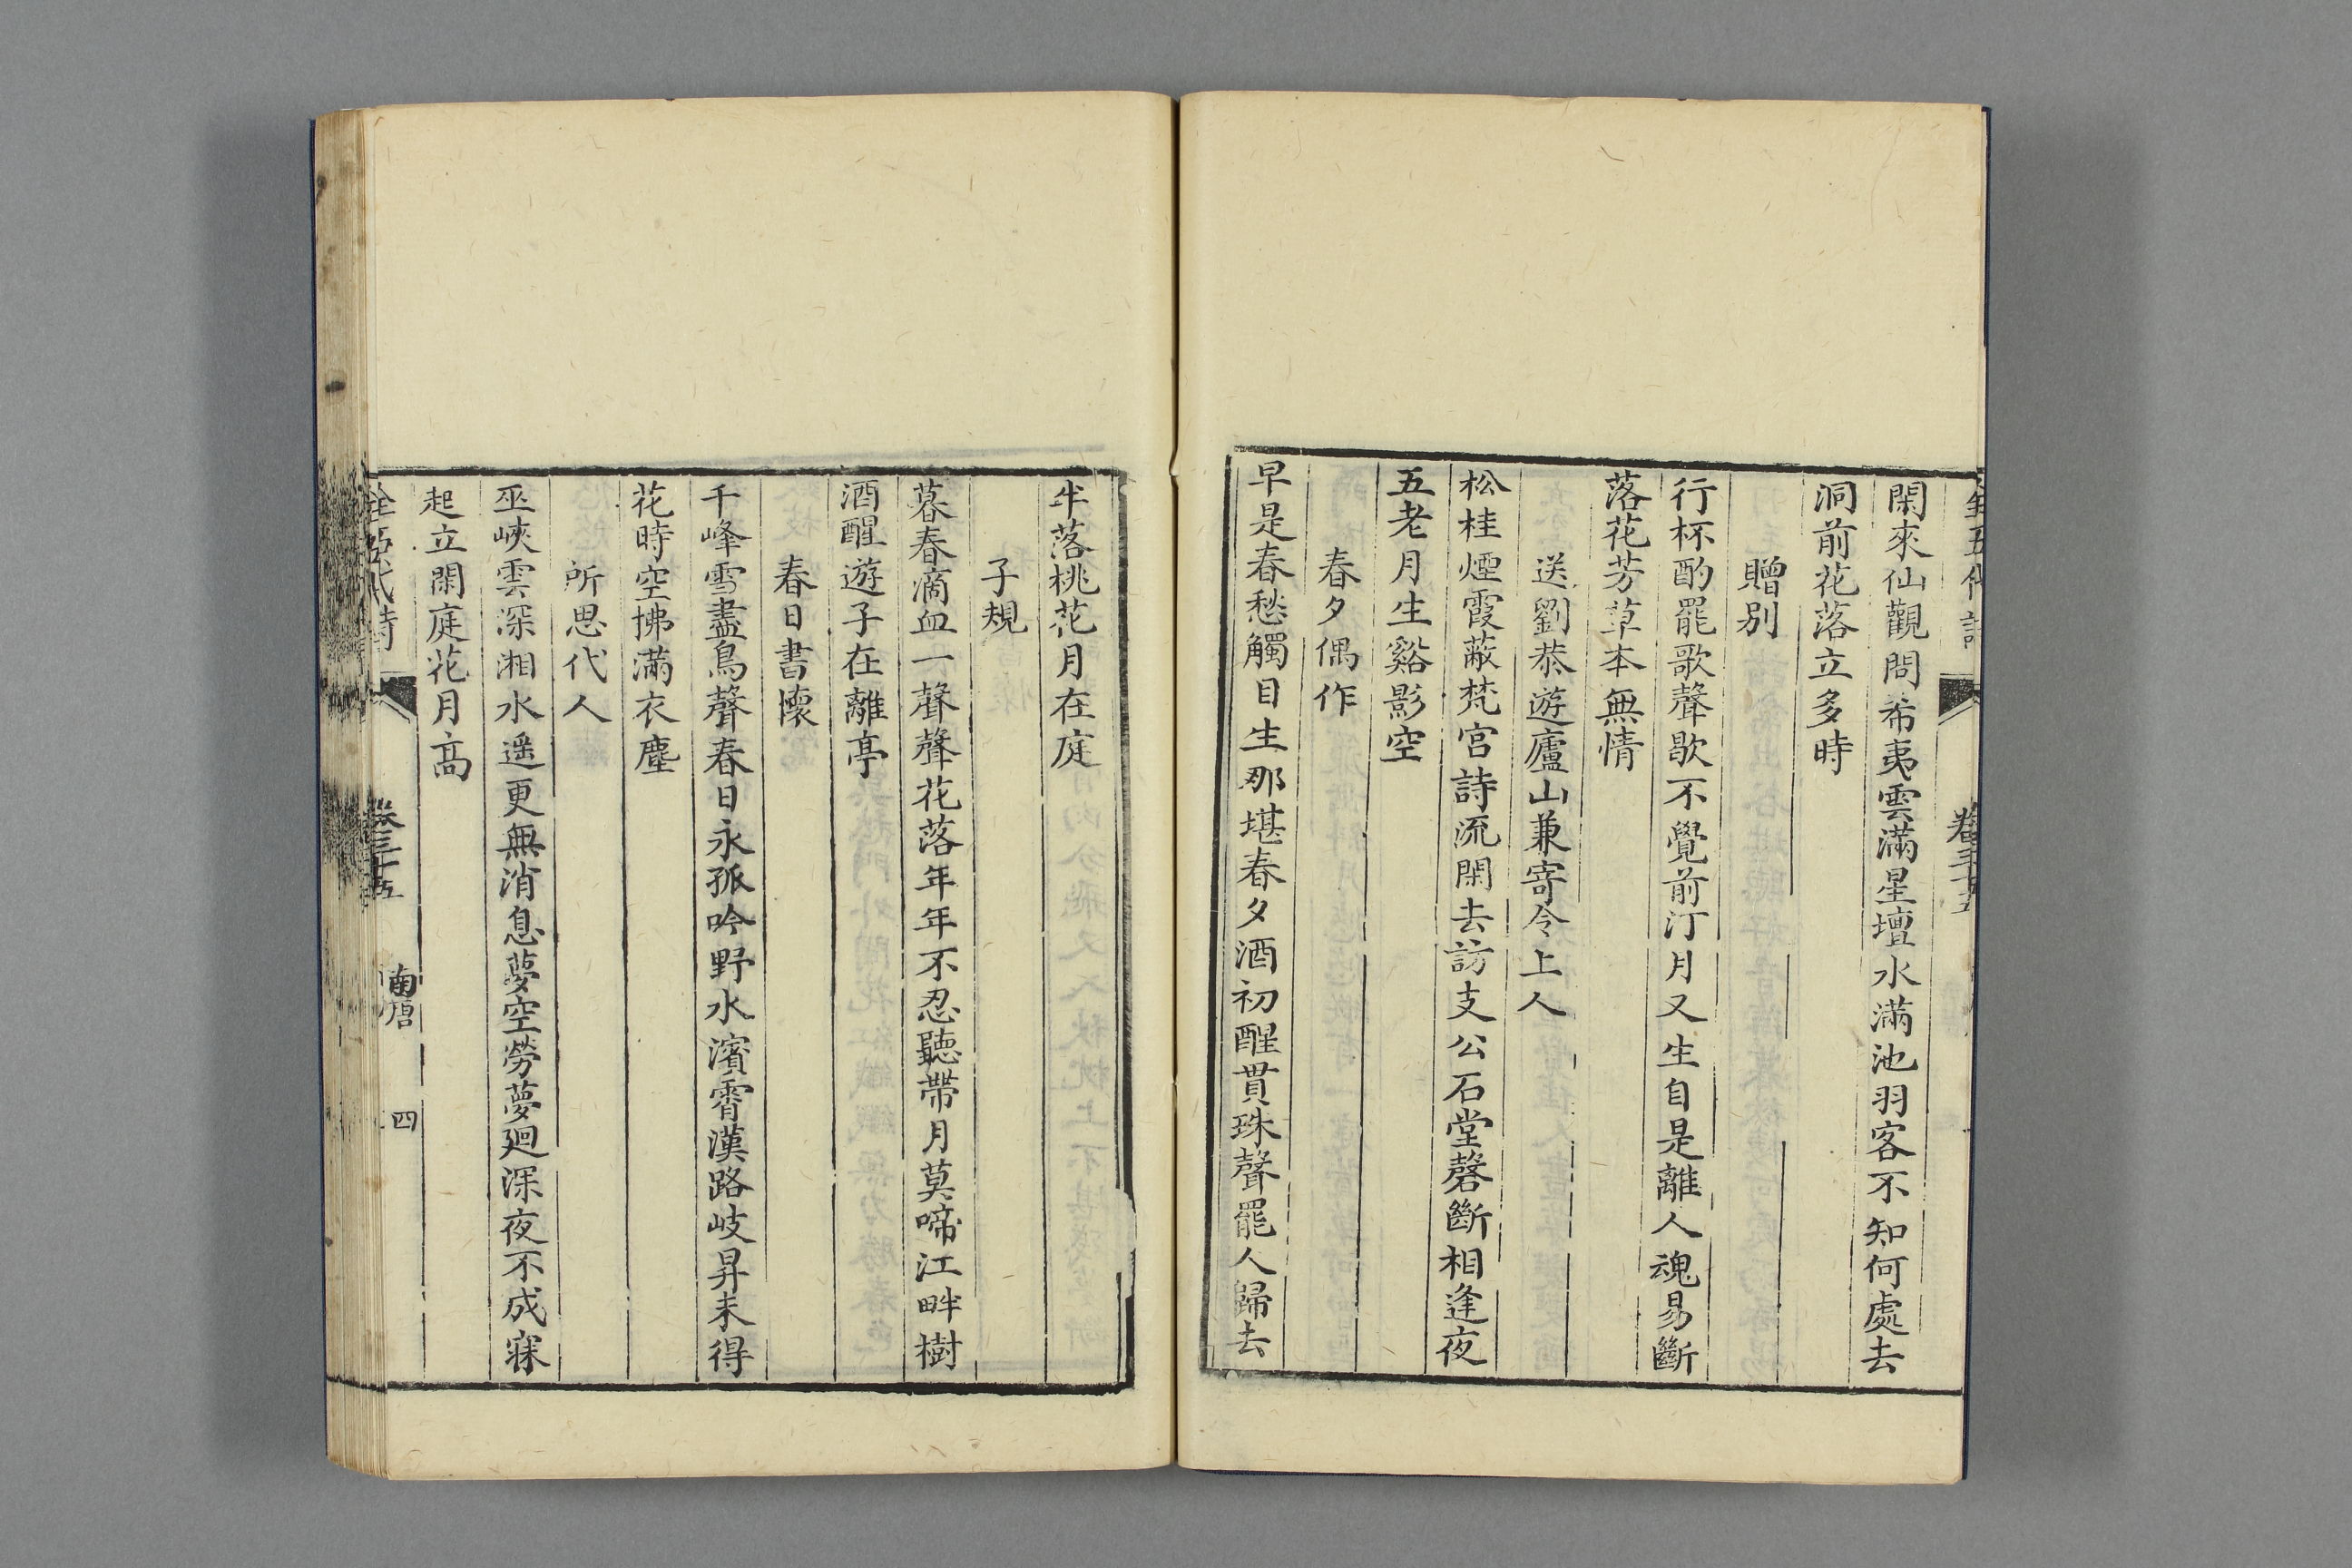 全五代詩
卷三十五
閑來仙觀問希夷雲滿星壇水滿池羽客不知何處去
洞前花落立多時
贈别
行杯酌罷歌聲歇不覺前汀月又生自是離人魂易斷
落花芳草本無情
送劉恭遊廬山兼寄令上人
松桂煙霞蔽梵宮詩流閑去訪支公石堂磬斷相逢夜
五老月生谿影空
春夕偶作
早是春愁觸目生那堪春夕酒初醒貫珠聲罷人歸去
半落桃花月在庭
子規
暮春滴血一聲聲花落年年不忍聽帶月莫啼江畔樹
酒醒遊子在離亭
春日書懷
千峰雪盡鳥聲春日永孤吟野水濱霄漢路岐昇未得
花時空拂滿衣塵
所思代人
巫峽雲深湘水遥更無消息夢空勞夢廻深夜不成寐
起立閑庭花月高
全五代詩
卷三十五
南唐
四